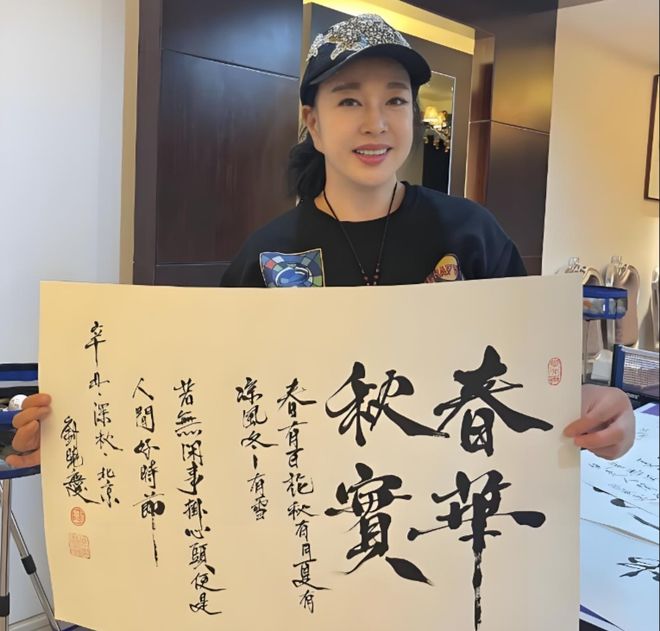 春華
秋實
春有百花秋有月夏有
涼風冬有雪
若無闲事掛心頭便是
人間好時節
辛丑深秋北京
劉曉慶